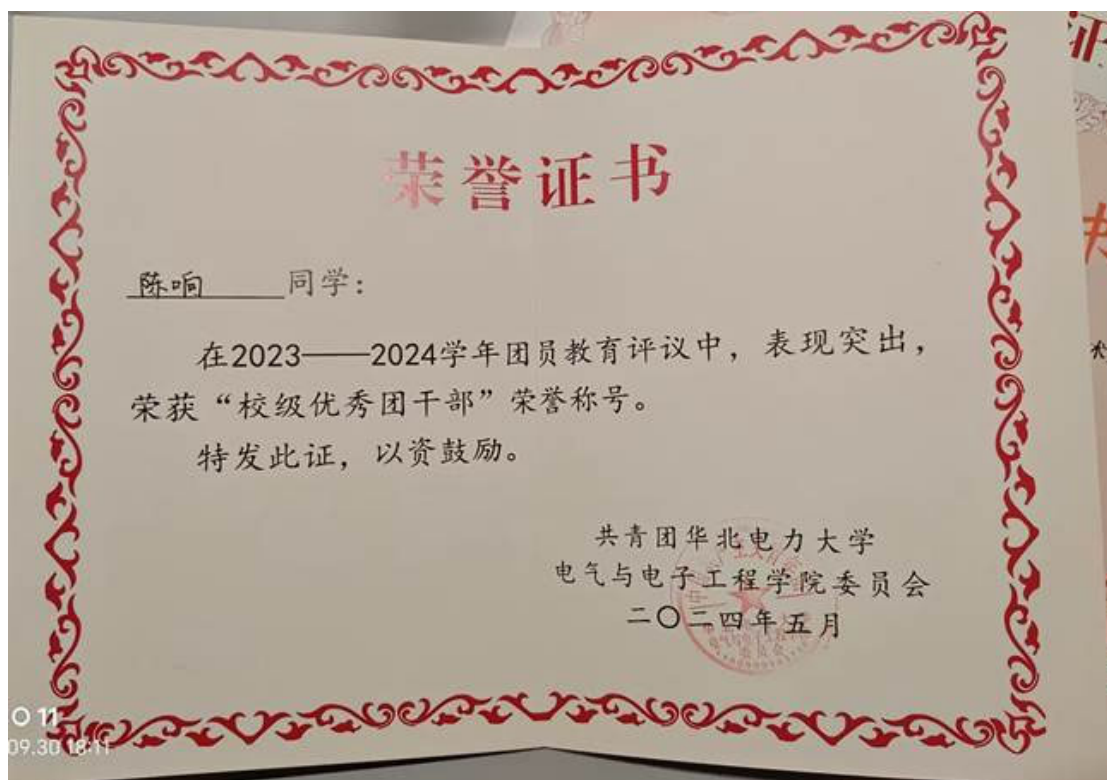 荣誉证书
陈响 同学：
在2023——2024学年团员教育评议中，表现突出，
荣获“校级优秀团干部”荣誉称号。
特发此证，以资鼓励。
共青团华北电力大学
电气与电子工程学院委员会
二〇二四年五月
11
09.30 18:11
证
书